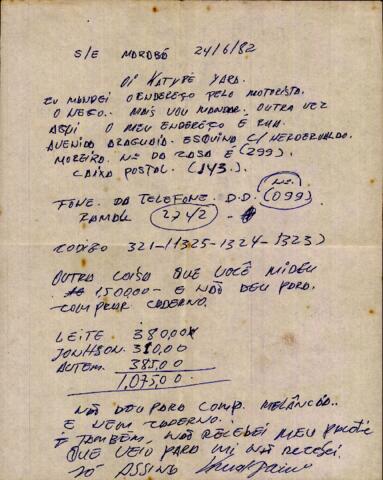 S/E MOROBÓ 24/6/82
OI KATYPE YARA.
EU MANDEI O ENDEREÇO PELO MOTORISTA.
O NEGO. MAIS VOU MANDAR. OUTRA VEZ
AQUI O MEU ENDEREÇO E RUA.
AVENIDA ARAGUAIA. ESQUINA C/
MOREIRA. Nº DA CASA E (299).
CAIXA POSTAL. (143.)
FONE. DA TELEFONE. D.D. (099)
RAMAL 2742 -
CODIGO 321-(1325-1324-1323)
OUTRA COISA QUE VOCÊ MIDEU
150000- E NÃO DEU PARA.
COMPRAR CADERNO.
LEITE. 380,00
JONHSON. 310,00
AUTEM. 385,00
1,075,00
NÃO DEU PARA COMP. MELÂNCIA.
E NEM CADERNO.
E TAMBÉM, NÃO RECEBEI MEU
QUE VEIO PARA MI NÃO RECEBEI.
SÓ ASSINO